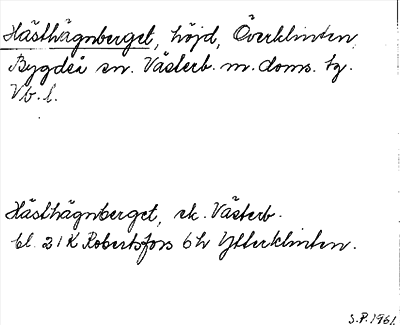 Hästhägnberget, höjd, Överklinten,
Bygdeå sn. Västerb. m. doms. tg.
Vb. l.
Hästhägnberget, ek. Västerb.
bl. 21K Robertsfors 6h Ytterklinten.
S.P. 1961.